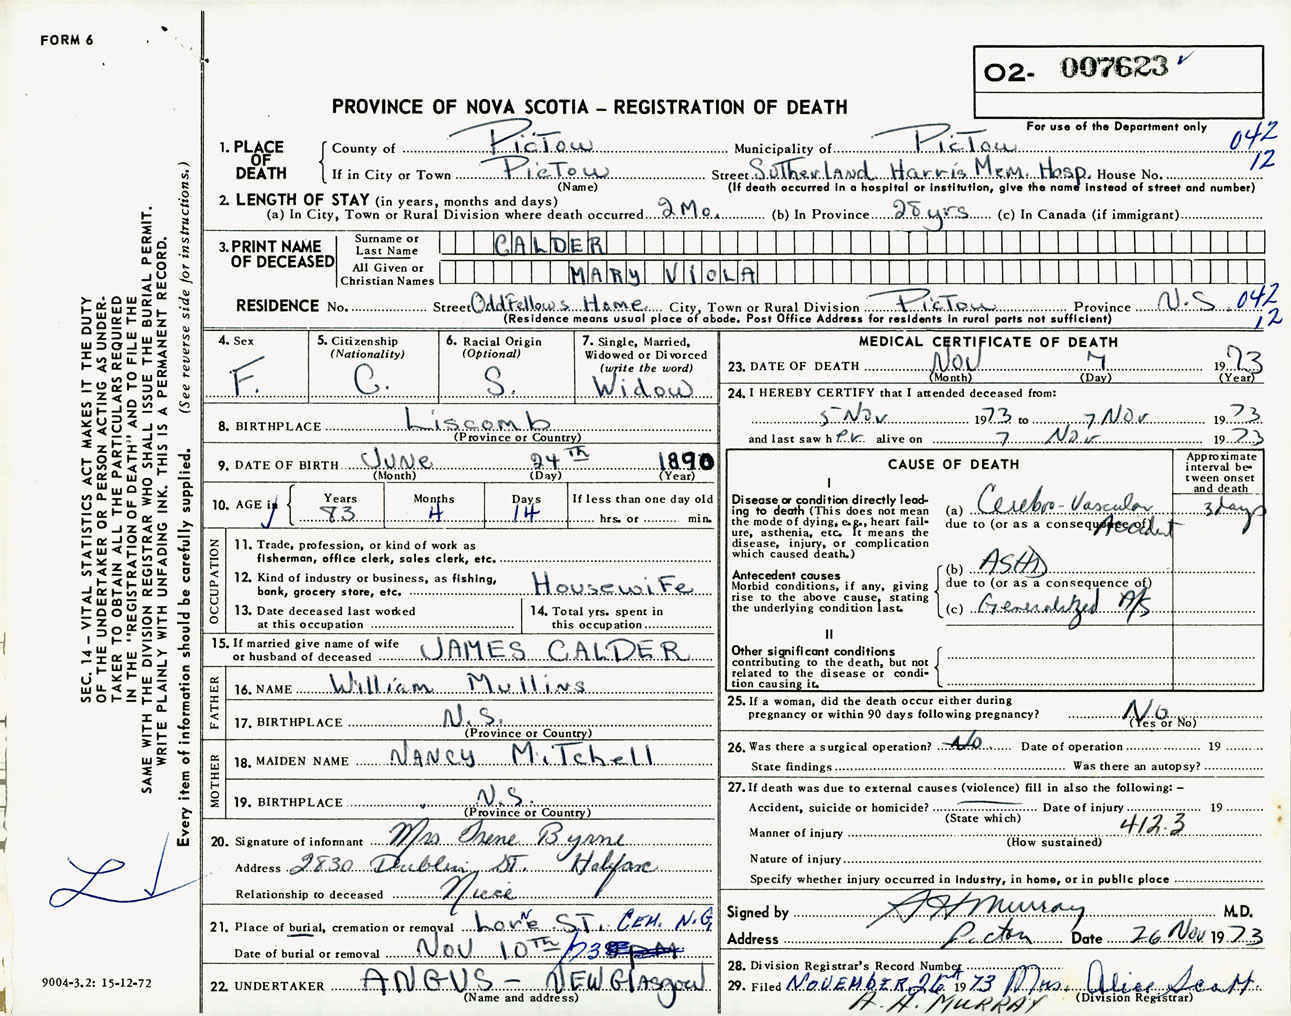 FORM 6
O2- 007623
For use of the Department only
PROVINCE OF NOVA SCOTIA – REGISTRATION OF DEATH
042
12
1. PLACE OF DEATH
County of Pictow Municipality of Pictow
If in City or Town Pictow Street Sutherland Harris Mem. Hosp. House No.
(Name) (If death occurred in a hospital or institution, give the name instead of street and number)
2. LENGTH OF STAY (in years, months and days)
(a) In City, Town or Rural Division where death occurred 2 Mo. (b) In Province 28 yrs (c) In Canada (if immigrant)
3. PRINT NAME OF DECEASED
Surname or Last Name CALDER
All Given or Christian Names MARY VIOLA
RESIDENCE No. Street Oddfellows Home City, Town or Rural Division Pictow Province N.S. 042
12
(Residence means usual place of abode. Post Office Address for residents in rural parts not sufficient)
4. Sex
F.
5. Citizenship
(Nationality)
C.
6. Racial Origin
(Optional)
S.
7. Single, Married,
Widowed or Divorced
(write the word)
Widow
8. BIRTHPLACE Liscomb
(Province or Country)
9. DATE OF BIRTH June 24th 1890
(Month) (Day) (Year)
10. AGE in
Years Months Days If less than one day old
83 4 14 hrs. or min.
OCCUPATION
11. Trade, profession, or kind of work as
fisherman, office clerk, sales clerk, etc.
12. Kind of industry or business, as fishing,
bank, grocery store, etc. Housewife
13. Date deceased last worked
at this occupation
14. Total yrs. spent in
this occupation
15. If married give name of wife
or husband of deceased JAMES CALDER
FATHER
16. NAME William Mullins
17. BIRTHPLACE N.S.
(Province or Country)
MOTHER
18. MAIDEN NAME NANCY MiTchell
19. BIRTHPLACE N.S.
(Province or Country)
20. Signature of informant Mrs Irene Byrne
Address 2830 Dublin St. Halifax
Relationship to deceased Niece
21. Place of burial, cremation or removal Lorne St. Cem. N.G.
Date of burial or removal Nov 10th /73
22. UNDERTAKER ANGUS – NEW GLASGOW
(Name and address)
MEDICAL CERTIFICATE OF DEATH
23. DATE OF DEATH Nov 7 1973
(Month) (Day) (Year)
24. I HEREBY CERTIFY that I attended deceased from:
5 Nov 1973 to 7 Nov 1973
and last saw her alive on 7 Nov 1973
CAUSE OF DEATH
Approximate
interval be-
tween onset
and death
I
Disease or condition directly lead-
ing to death (This does not mean
the mode of dying, e.g., heart fail-
ure, asthenia, etc. It means the
disease, injury, or complication
which caused death.)
(a) Cerebro-Vascular 3 days
due to (or as a consequence of) Accident
Antecedent causes
Morbid conditions, if any, giving
rise to the above cause, stating
the underlying condition last.
(b) ASHD
due to (or as a consequence of)
(c) Generalized A/S
II
Other significant conditions
contributing to the death, but not
related to the disease or condi-
tion causing it.
25. If a woman, did the death occur either during
pregnancy or within 90 days following pregnancy? No
(Yes or No)
26. Was there a surgical operation? No Date of operation 19
State findings Was there an autopsy?
27. If death was due to external causes (violence) fill in also the following: –
Accident, suicide or homicide? Date of injury 19
(State which)
412.3
Manner of injury
(How sustained)
Nature of injury
Specify whether injury occurred in industry, in home, or in public place
Signed by A H Murray M.D.
Address Pictou Date 26 Nov 1973
28. Division Registrar's Record Number
29. Filed NOVEMBER 26 1973 Mrs. Alice Scott
(Division Registrar)
A. H. MURRAY
SEC. 14 – VITAL STATISTICS ACT MAKES IT THE DUTY
OF THE UNDERTAKER OR PERSON ACTING AS UNDER-
TAKER TO OBTAIN ALL THE PARTICULARS REQUIRED
IN THE "REGISTRATION OF DEATH" AND TO FILE THE
SAME WITH THE DIVISION REGISTRAR WHO SHALL ISSUE THE BURIAL PERMIT.
WRITE PLAINLY WITH UNFADING INK. THIS IS A PERMANENT RECORD.
Every item of information should be carefully supplied. (See reverse side for instructions.)
9004-3.2: 15-12-72